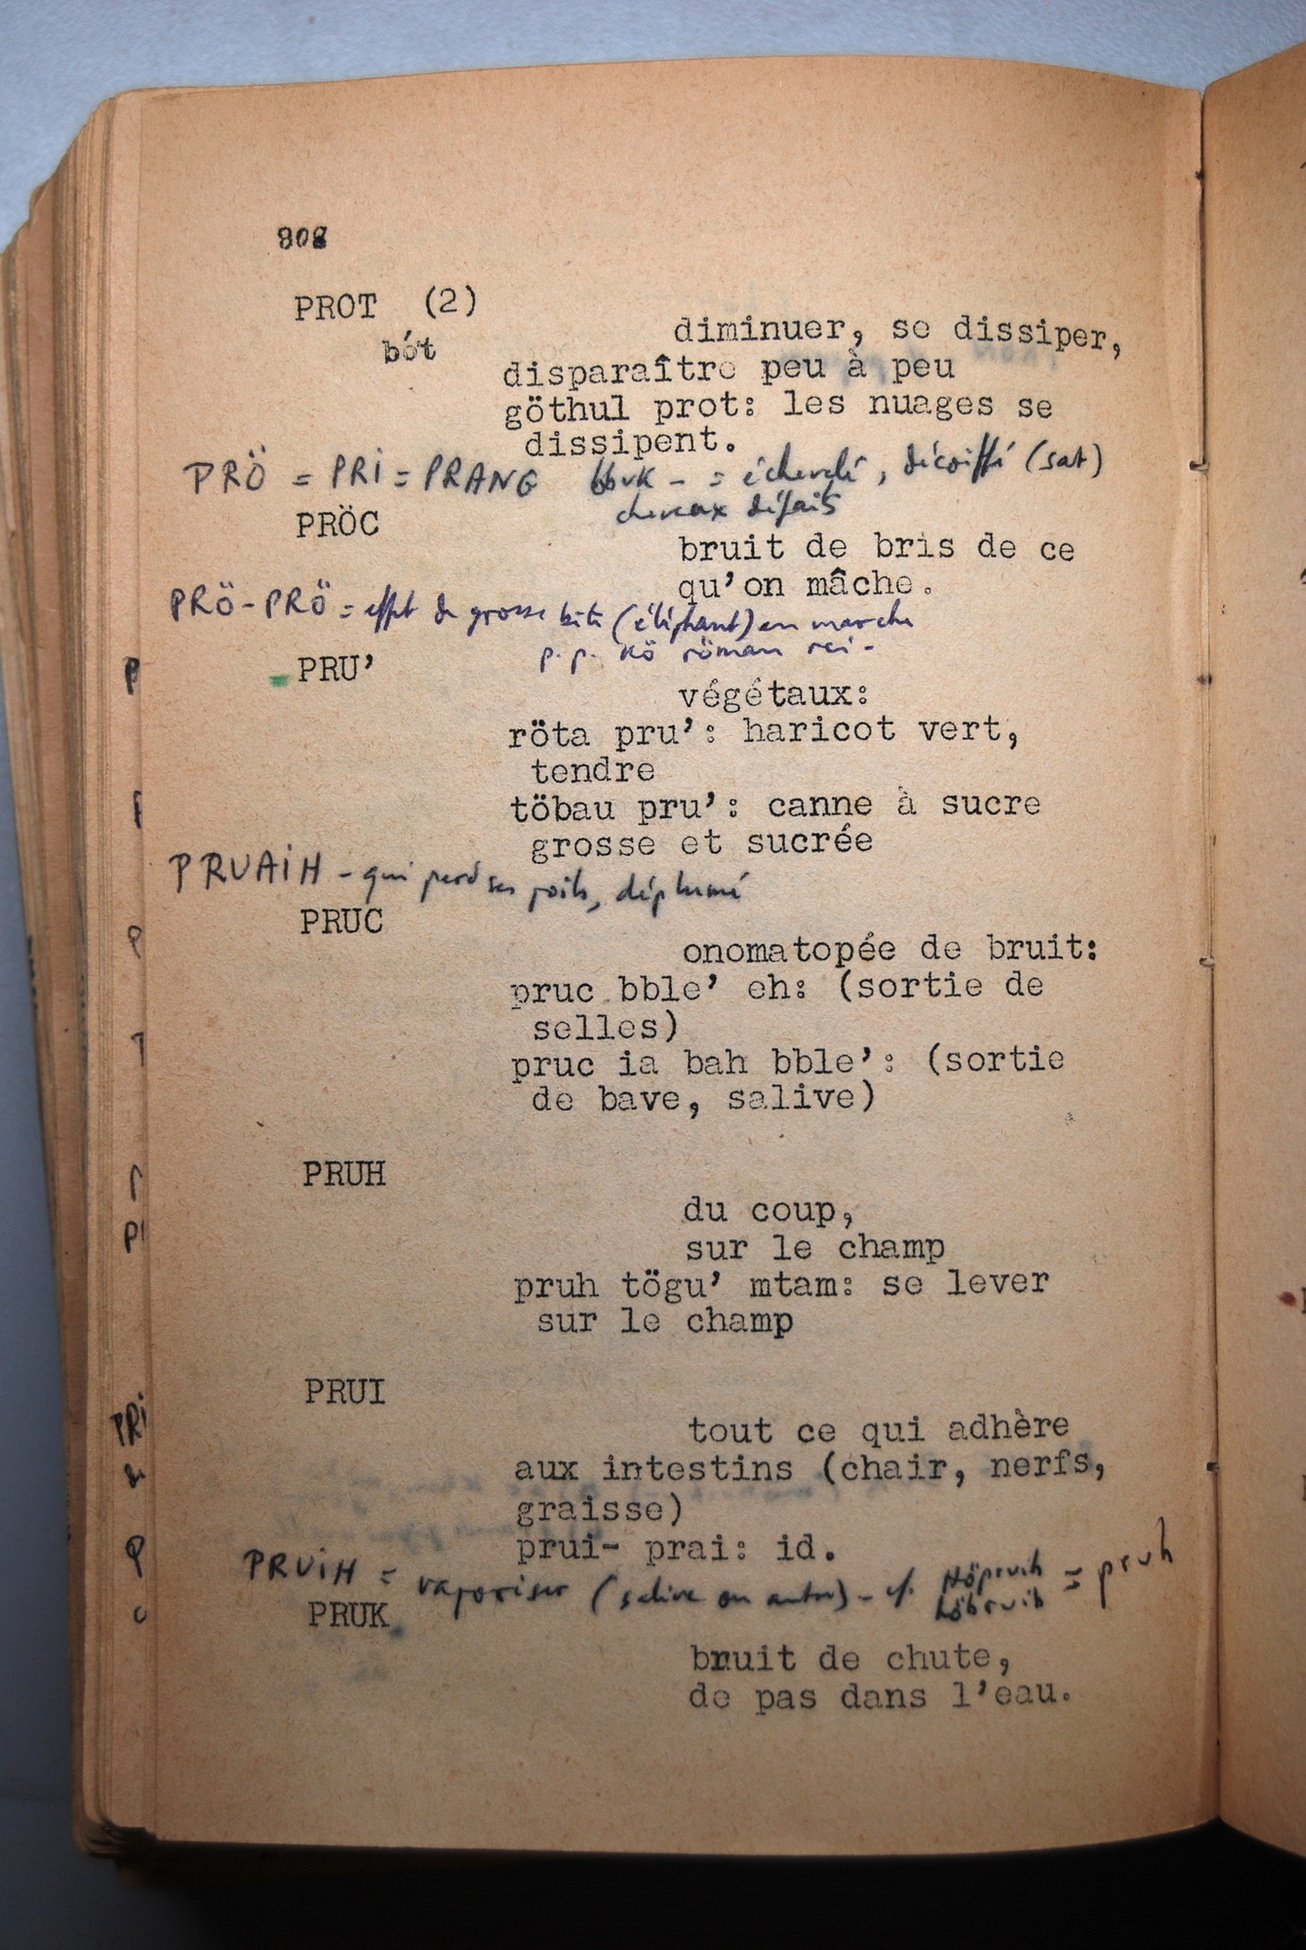 808
PROT (2)
bót
diminuer, se dissiper,
disparaître peu à peu
göthul prot: les nuages se
dissipent.
PRÖ = PRI = PRANG bbuk - = échevelé, décoiffé (sat)
cheveux défaits
PRÖC
bruit de bris de ce
qu'on mâche.
PRÖ-PRÖ = effet de grosse bête (éléphant) en marche
p. p. kö röman rei -
PRU'
végétaux:
röta pru': haricot vert,
tendre
töbau pru': canne à sucre
grosse et sucrée
PRUAIH - qui perd ses poils, déplumé
PRUC
onomatopée de bruit:
pruc bble' eh: (sortie de
selles)
pruc ia bah bble': (sortie
de bave, salive)
PRUH
du coup,
sur le champ
pruh tögu' mtam: se lever
sur le champ
PRUI
tout ce qui adhère
aux intestins (chair, nerfs,
graisse)
prui- prai: id.
PRUIH = vaporiser (salive ou autre) - cf. höpruih = pruh
höbruih
PRUK
bruit de chute,
de pas dans l'eau.